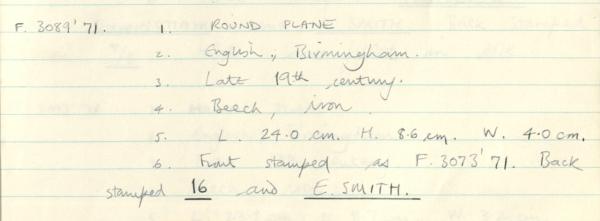 F. 3089'71. 1. ROUND PLANE
2. English, Birmingham.
3. Late 19th century.
4. Beech, iron.
5. L. 24.0 cm. H. 8.6 cm. W. 4.0 cm.
6. Front stamped as F. 3073'71. Back
stamped 16 and E. SMITH.